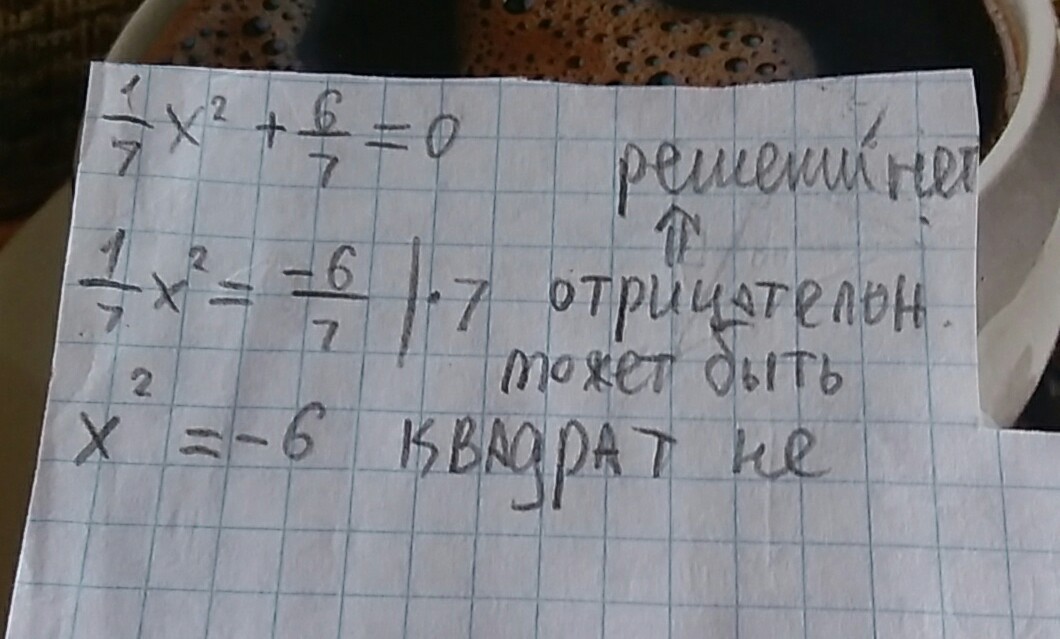 1/7 x² + 6/7 = 0
решений нет
⇑
1/7 x² = -6/7 | · 7 отрицателон.
может быть
x² = -6 квадрат не